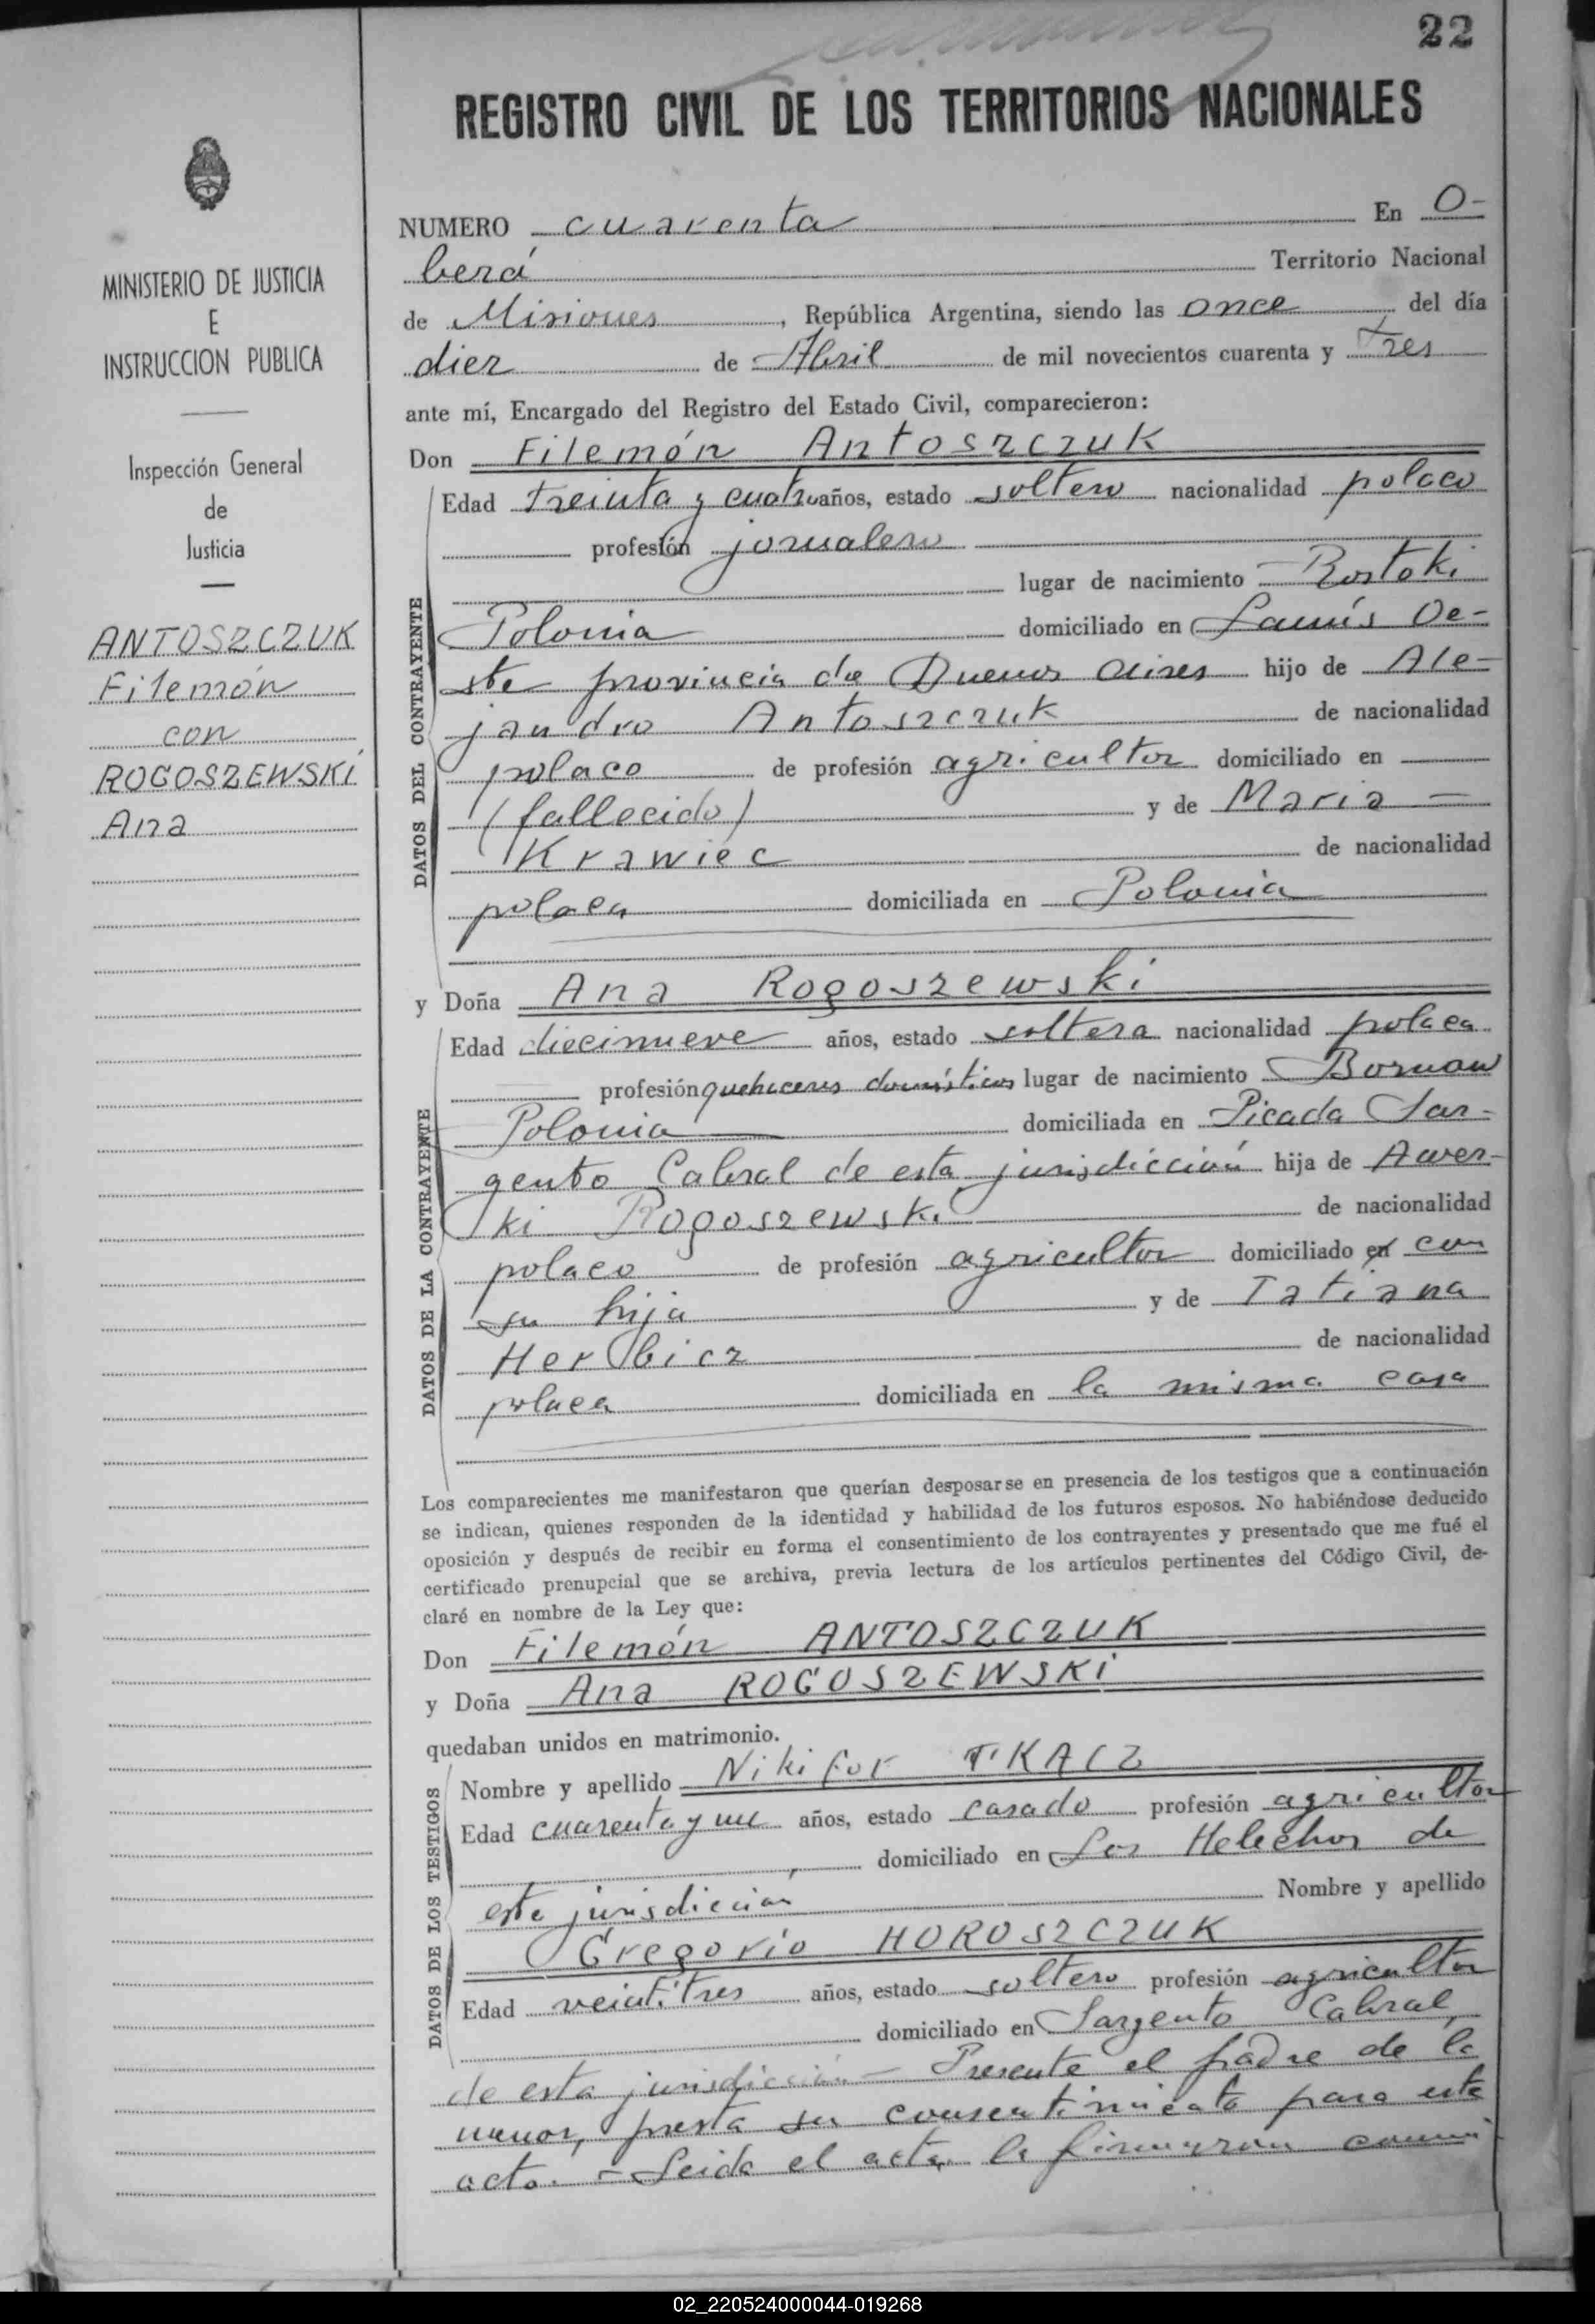 22
REGISTRO CIVIL DE LOS TERRITORIOS NACIONALES
MINISTERIO DE JUSTICIA
E
INSTRUCCION PUBLICA
Inspección General
de
Justicia
ANTOSZCZUK
Filemón
con
ROGOSZEWSKI
Ana
NUMERO cuarenta En O-
berá Territorio Nacional
de Misiones, República Argentina, siendo las once del día
diez de Abril de mil novecientos cuarenta y tres
ante mí, Encargado del Registro del Estado Civil, comparecieron:
Don Filemón Antoszczuk
DATOS DEL CONTRAYENTE
Edad treinta y cuatro años, estado soltero nacionalidad polaco
profesión jornalero
lugar de nacimiento Rostoki
Polonia domiciliado en Lanús Oe-
ste provincia de Buenos Aires hijo de Ale-
jandro Antoszczuk de nacionalidad
polaco de profesión agricultor domiciliado en
(fallecido) y de Maria
Krawiec de nacionalidad
polaca domiciliada en Polonia
y Doña Ana Rogoszewski
DATOS DE LA CONTRAYENTE
Edad diecinueve años, estado soltera nacionalidad polaca
profesión quehaceres domésticos lugar de nacimiento
Polonia domiciliada en Picada Sar-
gento Cabral de esta jurisdicción hija de Awer-
ki Rogoszewski de nacionalidad
polaco de profesión agricultor domiciliado en con
su hija y de Tatiana
Herbicz de nacionalidad
polaca domiciliada en la misma casa
Los comparecientes me manifestaron que querían desposarse en presencia de los testigos que a continuación
se indican, quienes responden de la identidad y habilidad de los futuros esposos. No habiéndose deducido
oposición y después de recibir en forma el consentimiento de los contrayentes y presentado que me fué el
certificado prenupcial que se archiva, previa lectura de los artículos pertinentes del Código Civil, de-
claré en nombre de la Ley que:
Don Filemón ANTOSZCZUK
y Doña Ana ROGOSZEWSKI
quedaban unidos en matrimonio.
DATOS DE LOS TESTIGOS
Nombre y apellido Nikifor TKACZ
Edad cuarenta y un años, estado casado profesión agricultor
domiciliado en Los Helechos de
esta jurisdicción Nombre y apellido
Gregorio HOROSZCZUK
Edad veintitres años, estado soltero profesión agricultor
domiciliado en Sargento Cabral
de esta jurisdicción - Presente el padre de la
menor, presta su consentimiento para este
acto. - Leida el acta la firmaron
02_220524000044-019268